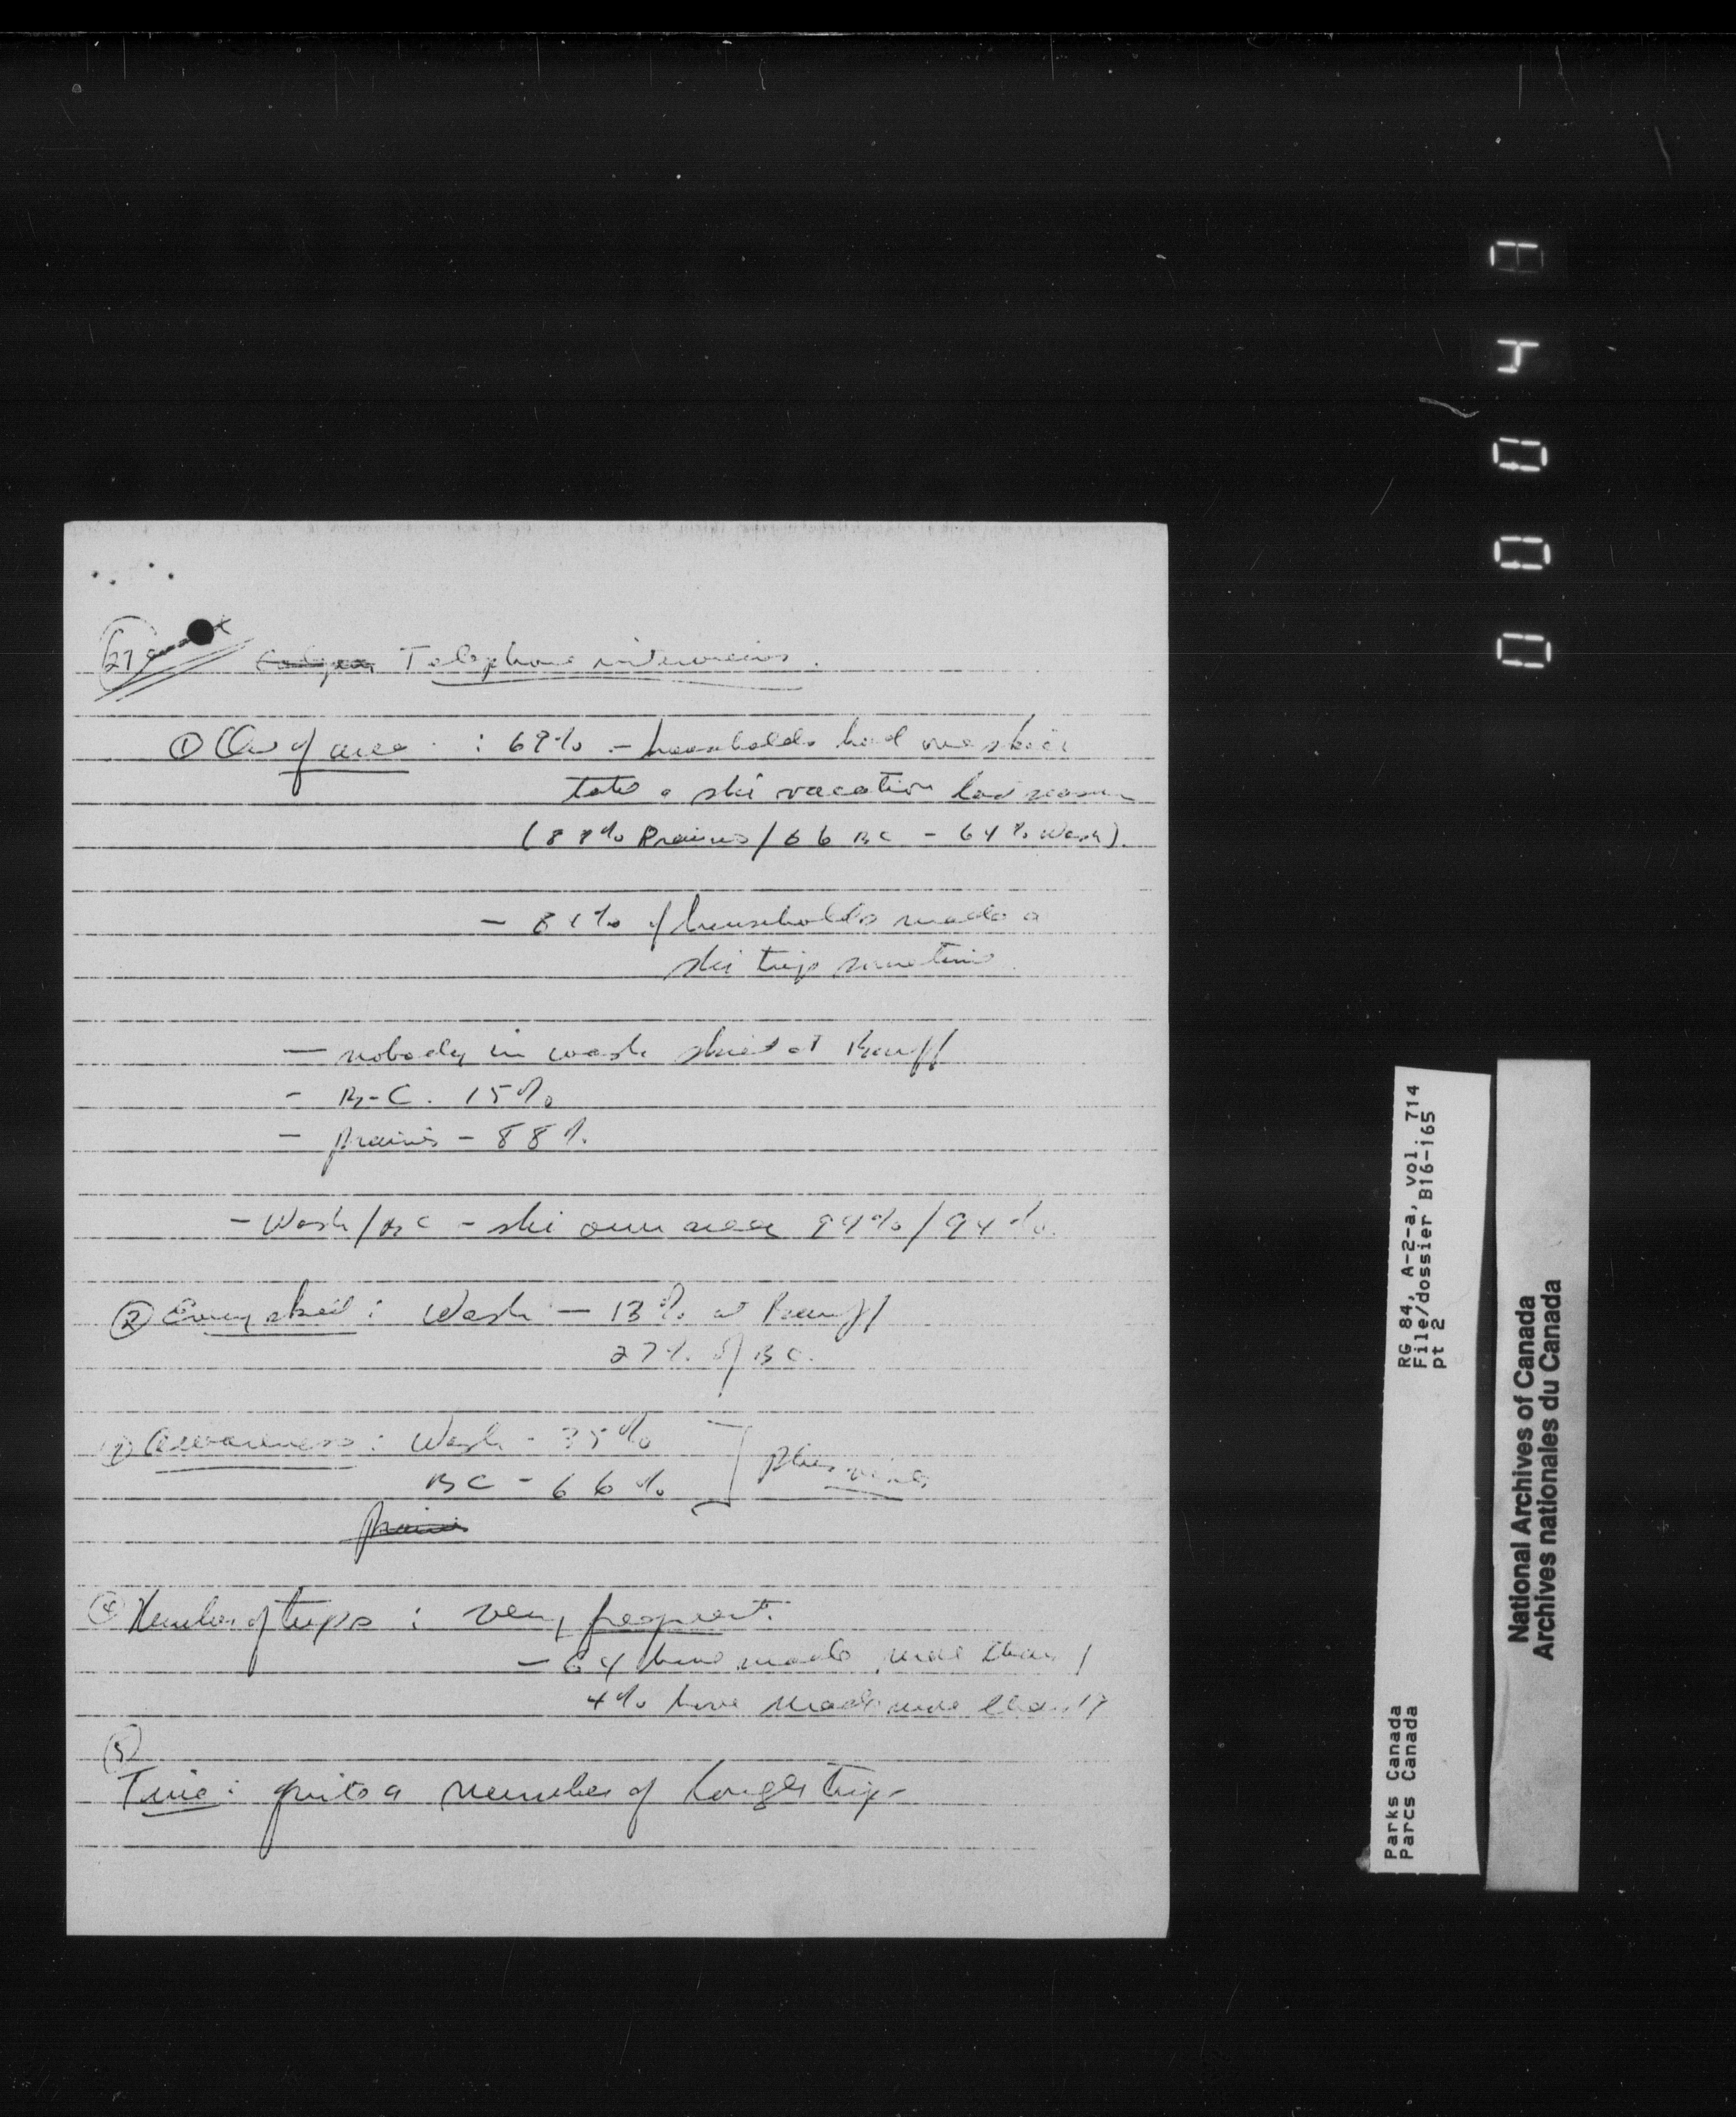 27
Telephone interviews.
① Out of area : 69% - households had one skier
take a ski vacation last season
(88% Prairies / 66 BC - 64% Wash).
- 81% of households made a
ski trip sometime
- nobody in wash skied at Banff
- B-C. 15%
- prairies - 88%
- Wash/BC - ski own area 94% / 94%.
② Ever skied : Wash - 13% at Banff
27% of BC.
Awareness : Wash - 35%
BC - 66%
Prairies
④ Number of trips : very frequent.
- 64 have made more than 1
4% have made more than
5
Time : quite a number of longer trips
RG 84, A-2-a, vol. 714
File/dossier B16-165
pt 2
Parks Canada
Parcs Canada
National Archives of Canada
Archives nationales du Canada